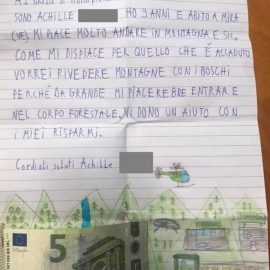 SONO ACHILLE HO 9 ANNI E ABITO A MIRA
(VE), MI PIACE MOLTO ANDARE IN MONTAGNA E SIC
COME MI DISPIACE PER QUELLO CHE È ACCADUTO
VORREI RIVEDERE MONTAGNE CON I BOSCHI
PERCHÈ DA GRANDE MI PIACEREBBE ENTRARE
NEL CORPO FORESTALE, VI DONO UN AIUTO CON
I MIEI RISPARMI.
Cordiali saluti Achille
5